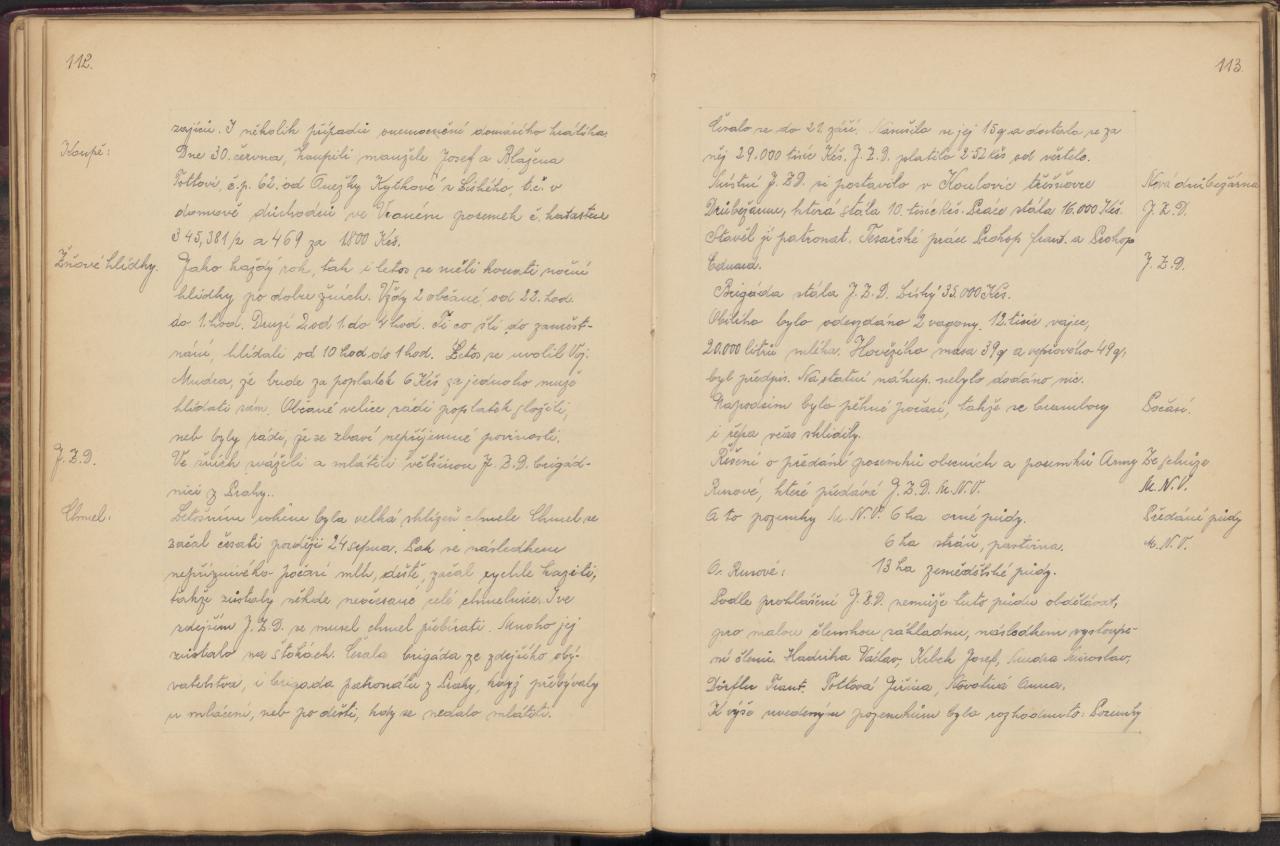 112.
zajíců. I několik případů onemocnění domácího králíka.
Koupě:
Dne 30. června, koupili manželé Josef a Blažena
Tottovi, č.p. 62. od Anežky Kytkové z Lišského, t.č. v
domově důchodců ve Vraném pozemek č. katastru
345,381/2 a 469 za 1800 Kčs.
Žňové hlídky.
Jako každý rok, tak i letos se měli konati noční
hlídky po dobu žních. Vždy 2 občané, od 22. hod.
do 1. hod. Druzí 2 od 1. do 4 hod. Ti co šli do zaměst-
nání, hlídali od 10 hod. do 1 hod. Letos se uvolil Voj.
Mudra, že bude za poplatek 6 Kčs za jednoho muže
hlídati sám. Občané velice rádi poplatek složili,
neb byly rádi, že se zbaví nepříjemné povinosti.
J.Z.D.
Ve žních sváželi a mlátili většinou J.Z.D. brigád-
níci z Prahy.
Chmel:
Letošním rokem byla velká sklizeň chmele. Chmel se
začal česati později 24 srpna. Pak se následkem
nepříznivého počasí mlh, deště, začal rychle kaziti,
takže zůstaly někde nečesané celé chmelnice. I ve
zdejším J.Z.D. se musel chmel přebírati. Mnoho jej
zůstalo na štokách. Česala brigáda ze zdejšího oby-
vatelstva, i brigada patronátu z Prahy, když přebývaly
u mlácení, neb po dešti, kdy se nedalo mlátiti.
113.
Česalo se do 21 září. Násušilo se jej 15 q a dostalo se za
něj 29.000 tisíc Kčs. J.Z.D. platilo 2.52 kčs od věrtele.
Nová drůbežárna
J.Z.D.
Místní J.Z.D. si postavilo v Koulovic třešňovce
Drůbežárnu, která stála 10. tisíc Kčs. Práce stála 16.000 Kčs.
Stavěl jí patronat. Tesařské práce Prokop Frant. a Prokop
Eduard.
J.Z.D.
Brigáda stála J.Z.D. Lišký 35.000 Kčs.
Obilího bylo odevzdáno 2 vagony. 12. tisíc vajec,
20.000 litrů mléka. Hovězího masa 39 q a vepřového 49 q,
byl předpis. Na statní náhup. nebylo dodáno nic.
Počasí.
Napodzim bylo pěkné počasí, takže se brambory
i řepa včas sklidily.
Ze schůze
M.N.V.
Řešení o předání pozemků obecních a pozemků Anny
Rusové, které předává J.Z.D. M.N.V.
Předání půdy
M.N.V.
A to pozemky M.N.V. 6 ha orné půdy.
6 ha stráň, pastvina.
A. Rusové: 13 ha zemědělské půdy.
Podle prohlášení J.Z.D. nemůže tuto půdu obdělávat,
pro malou členskou základnu, následkem vystoupe-
ní členů. Hadrika Václav, Kebek Josef, Mudra Miroslav,
Dörfler Frant. Tottová Jiřina, Novotná Anna.
K výše uvedeným pozemkům bylo rozhodnuto: Pozemky